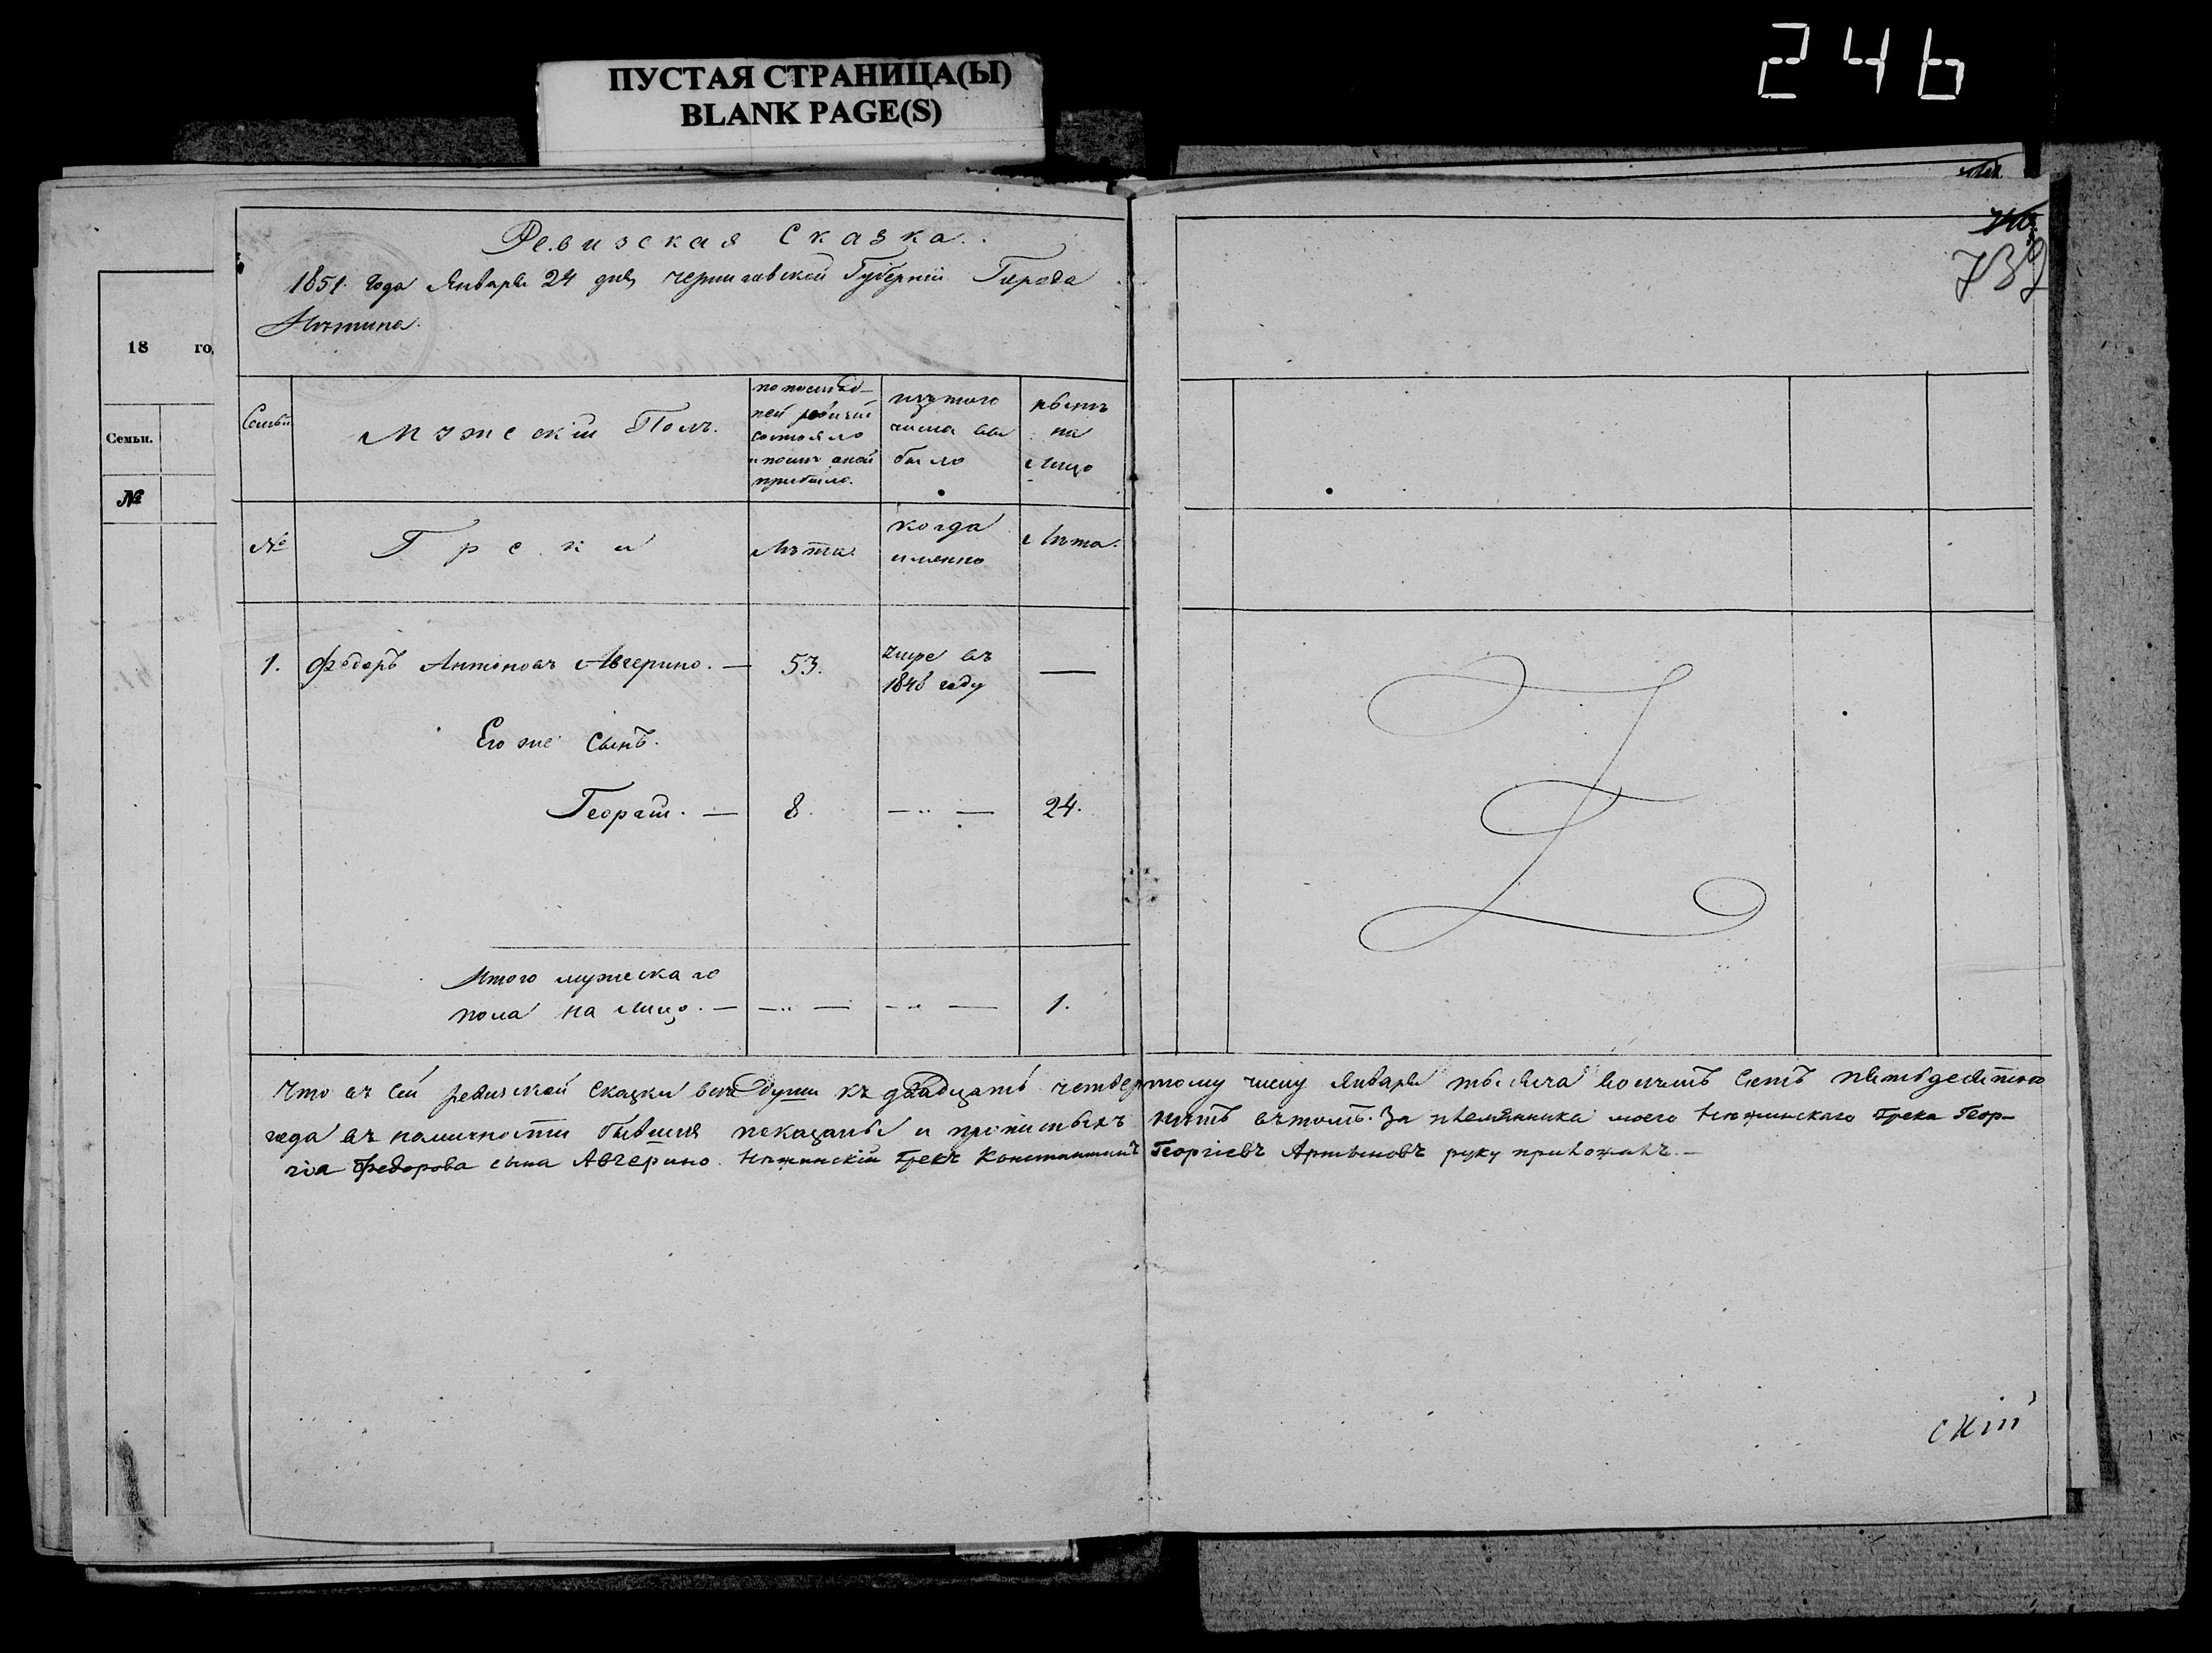 246
ПУСТАЯ СТРАНИЦА(Ы)
BLANK PAGE(S)
739
18 го
Семьи.
№
Ревизская Сказка.
1851. Года Января 24 дня Черниговской Губерніи Города
Нѣжина.
Семьи
Мужескій Полъ.
по послѣд-
ней ревизіи
состояло
и послѣ оной
прибыло.
изъ того
числа вы
было
нынѣ
на
лицо
№
Греки
Лѣта
когда
именно
Лѣта.
1. Федоръ Антоновъ Авгерино. — 53. умре въ —
1848 году
Его же Сынъ.
Георгій. — 8. — „ — 24.
Итого мужескаго
пола на лицо. — — „ — — „ — 1.
Что въ сей ревизской Сказки всѣ души къ двадцать четвертому числу Января тысяча восемъ Сотъ пятьдесятого
года въ наличности бывшия показаны и прописныхъ нѣтъ въ томъ. За племянника моего Нѣжинскаго Грека Геор-
гія Федорова сына Авгерино. Нѣжинскій Грекъ Константинъ Георгіевъ Артыновъ руку приложилъ. —
скій